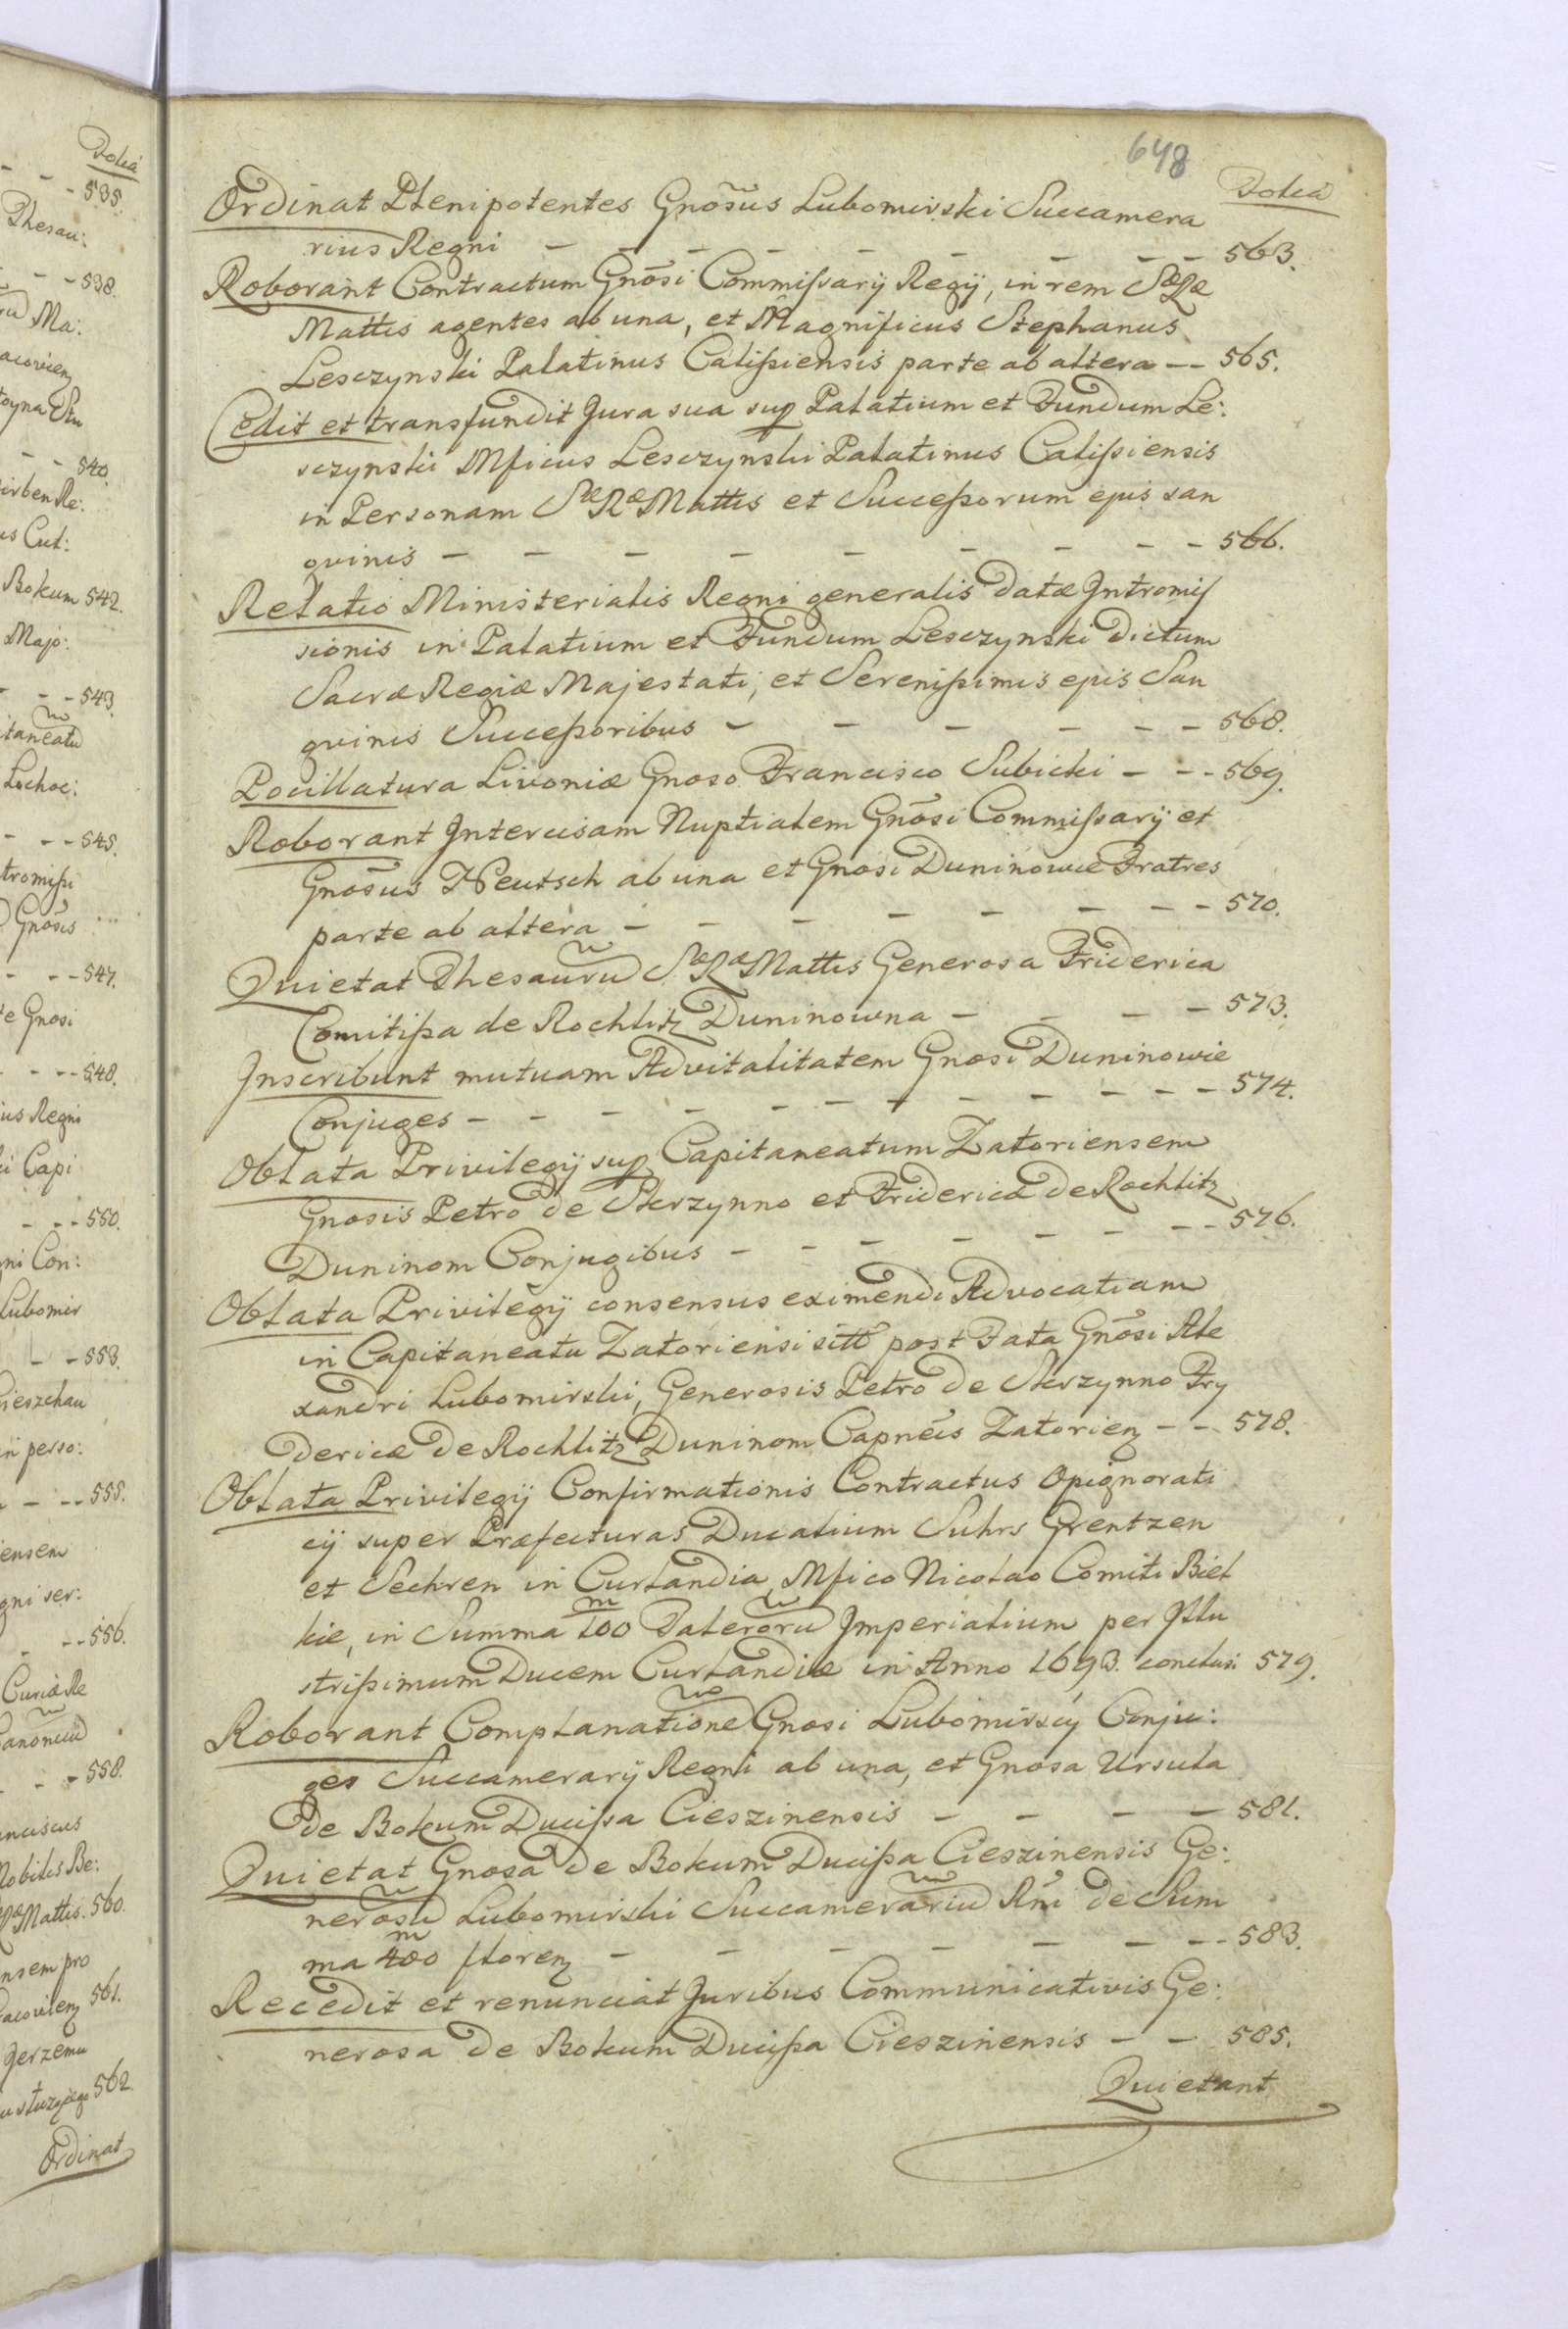 Folia
- - - 535.
Thesau:
- - - 538.
Ma:
- - 540.
Bokum 542.
Majo:
- - - 543.
Lochoc:
- - - 545.
Gnosis
- - - 547.
e Gnosi
- - - 548.
ius Regni
Capi
- - - 550.
ni Con:
Lubomir
- - 553.
Cieszhau
in perso:
- - - 555.
iensem
gni ser:
- - - 556.
Curiæ Re
- - - 558.
nciscus
Nobilis Be:
Mattis. 560.
nsem pro
561.
562.
Ordinat
648
Folia
Ordinat Plenipotentes Gnosus Lubomirski Succamera
rius Regni - - - - - - - - 563.
Roborant Contractum Gnosi Commissarij Regij, in rem SæRæ
Mattis agentes ab una, et Magnificus Stephanus
Lesczynski Palatinus Calissiensis parte ab altera -- 565.
Cedit et transfundit Jura sua sup Palatium et Fundum Le:
sczynski Mficus Lesczynski Palatinus Calissiensis
in Personam SæRæ Mattis et Successorum epis san
gvinis - - - - - - - - - 566.
Relatio Ministerialis Regni generalis datæ Intromis
sionis in Palatium et Fundum Lesczynski dictum
Sacræ Regiæ Majestati, et Serenissimis epis San
gvinis Successoribus - - - - - - 568.
Pocillatura Livoniæ Gnoso Francisco Subicki - - - 569.
Roborant Intercisam Nuptialem Gnosi Commissarij et
Gnosus Neutsch ab una et Gnosi Duninowie Fratres
parte ab altera - - - - - - - - 570.
Quietat Thesauru SæRæ Mattis Generosa Friderica
Comitissa de Rochlitz Duninowna - - - - 573.
Inscribunt mutuam Advitalitatem Gnosi Duninowie
Conjuges - - - - - - - - - - - - 574.
Oblata Privilegij sup Capitaneatum Zatoriensem
Gnosis Petro de Skrzynno et Friderica de Rochlitz
Duninom Conjugibus - - - - - - - - 576.
Oblata Privilegij consensus eximendi Advocatiam
in Capitaneatu Zatoriensi sitt post Fata Gnosi Ale
xandri Lubomirski, Generosis Petro de Skrzynno Fry
dericæ de Rochlitz Duninom Capneis Zatorien - - 578.
Oblata Privilegij Confirmationis Contractus Opignorati
cij super Præfecturas Ducalium Suhrs Grentzen
et Seckren in Curlandia, Mfico Nicolao Comiti Biel
kie, in Summa m 100 Taleroru Imperialium per Illu
strissimum Ducem Curlandiæ in Anno 1693. conclusi 579.
Roborant Complanatione Gnosi Lubomirscy Conju:
ges Succamerarij Regni ab una, et Gnosa Ursula
de Bokum Ducissa Cieszinensis - - - - 581.
Quietat Gnosa de Bokum Ducissa Cieszinensis Ge:
nerosu Lubomirski Succamerariu Rni de Sum
ma m 400 floren - - - - - - - - 583.
Recedit et renunciat Juribus Communicativis Ge:
nerosa de Bokum Ducissa Cieszinensis - - 585.
Quietant